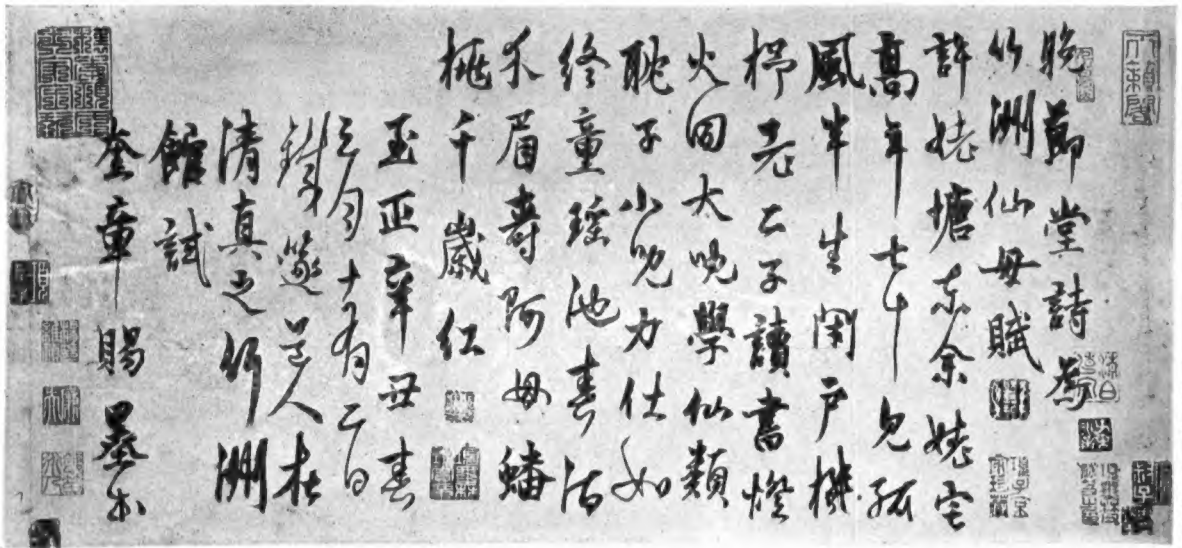 晚節堂詩為
竹洲仙母賦
許姥塘東余姥宅
高年七十見孤
風半生閉户機
杼老二子讀書燈
火同大兒學仙類
聃子小兒力仕如
終童瑤池春酒
介眉壽阿母蟠
桃千歲紅
至正辛丑春
正月十有二日
鐵篴道人在
清真之竹洲
館試
奎章賜墨書